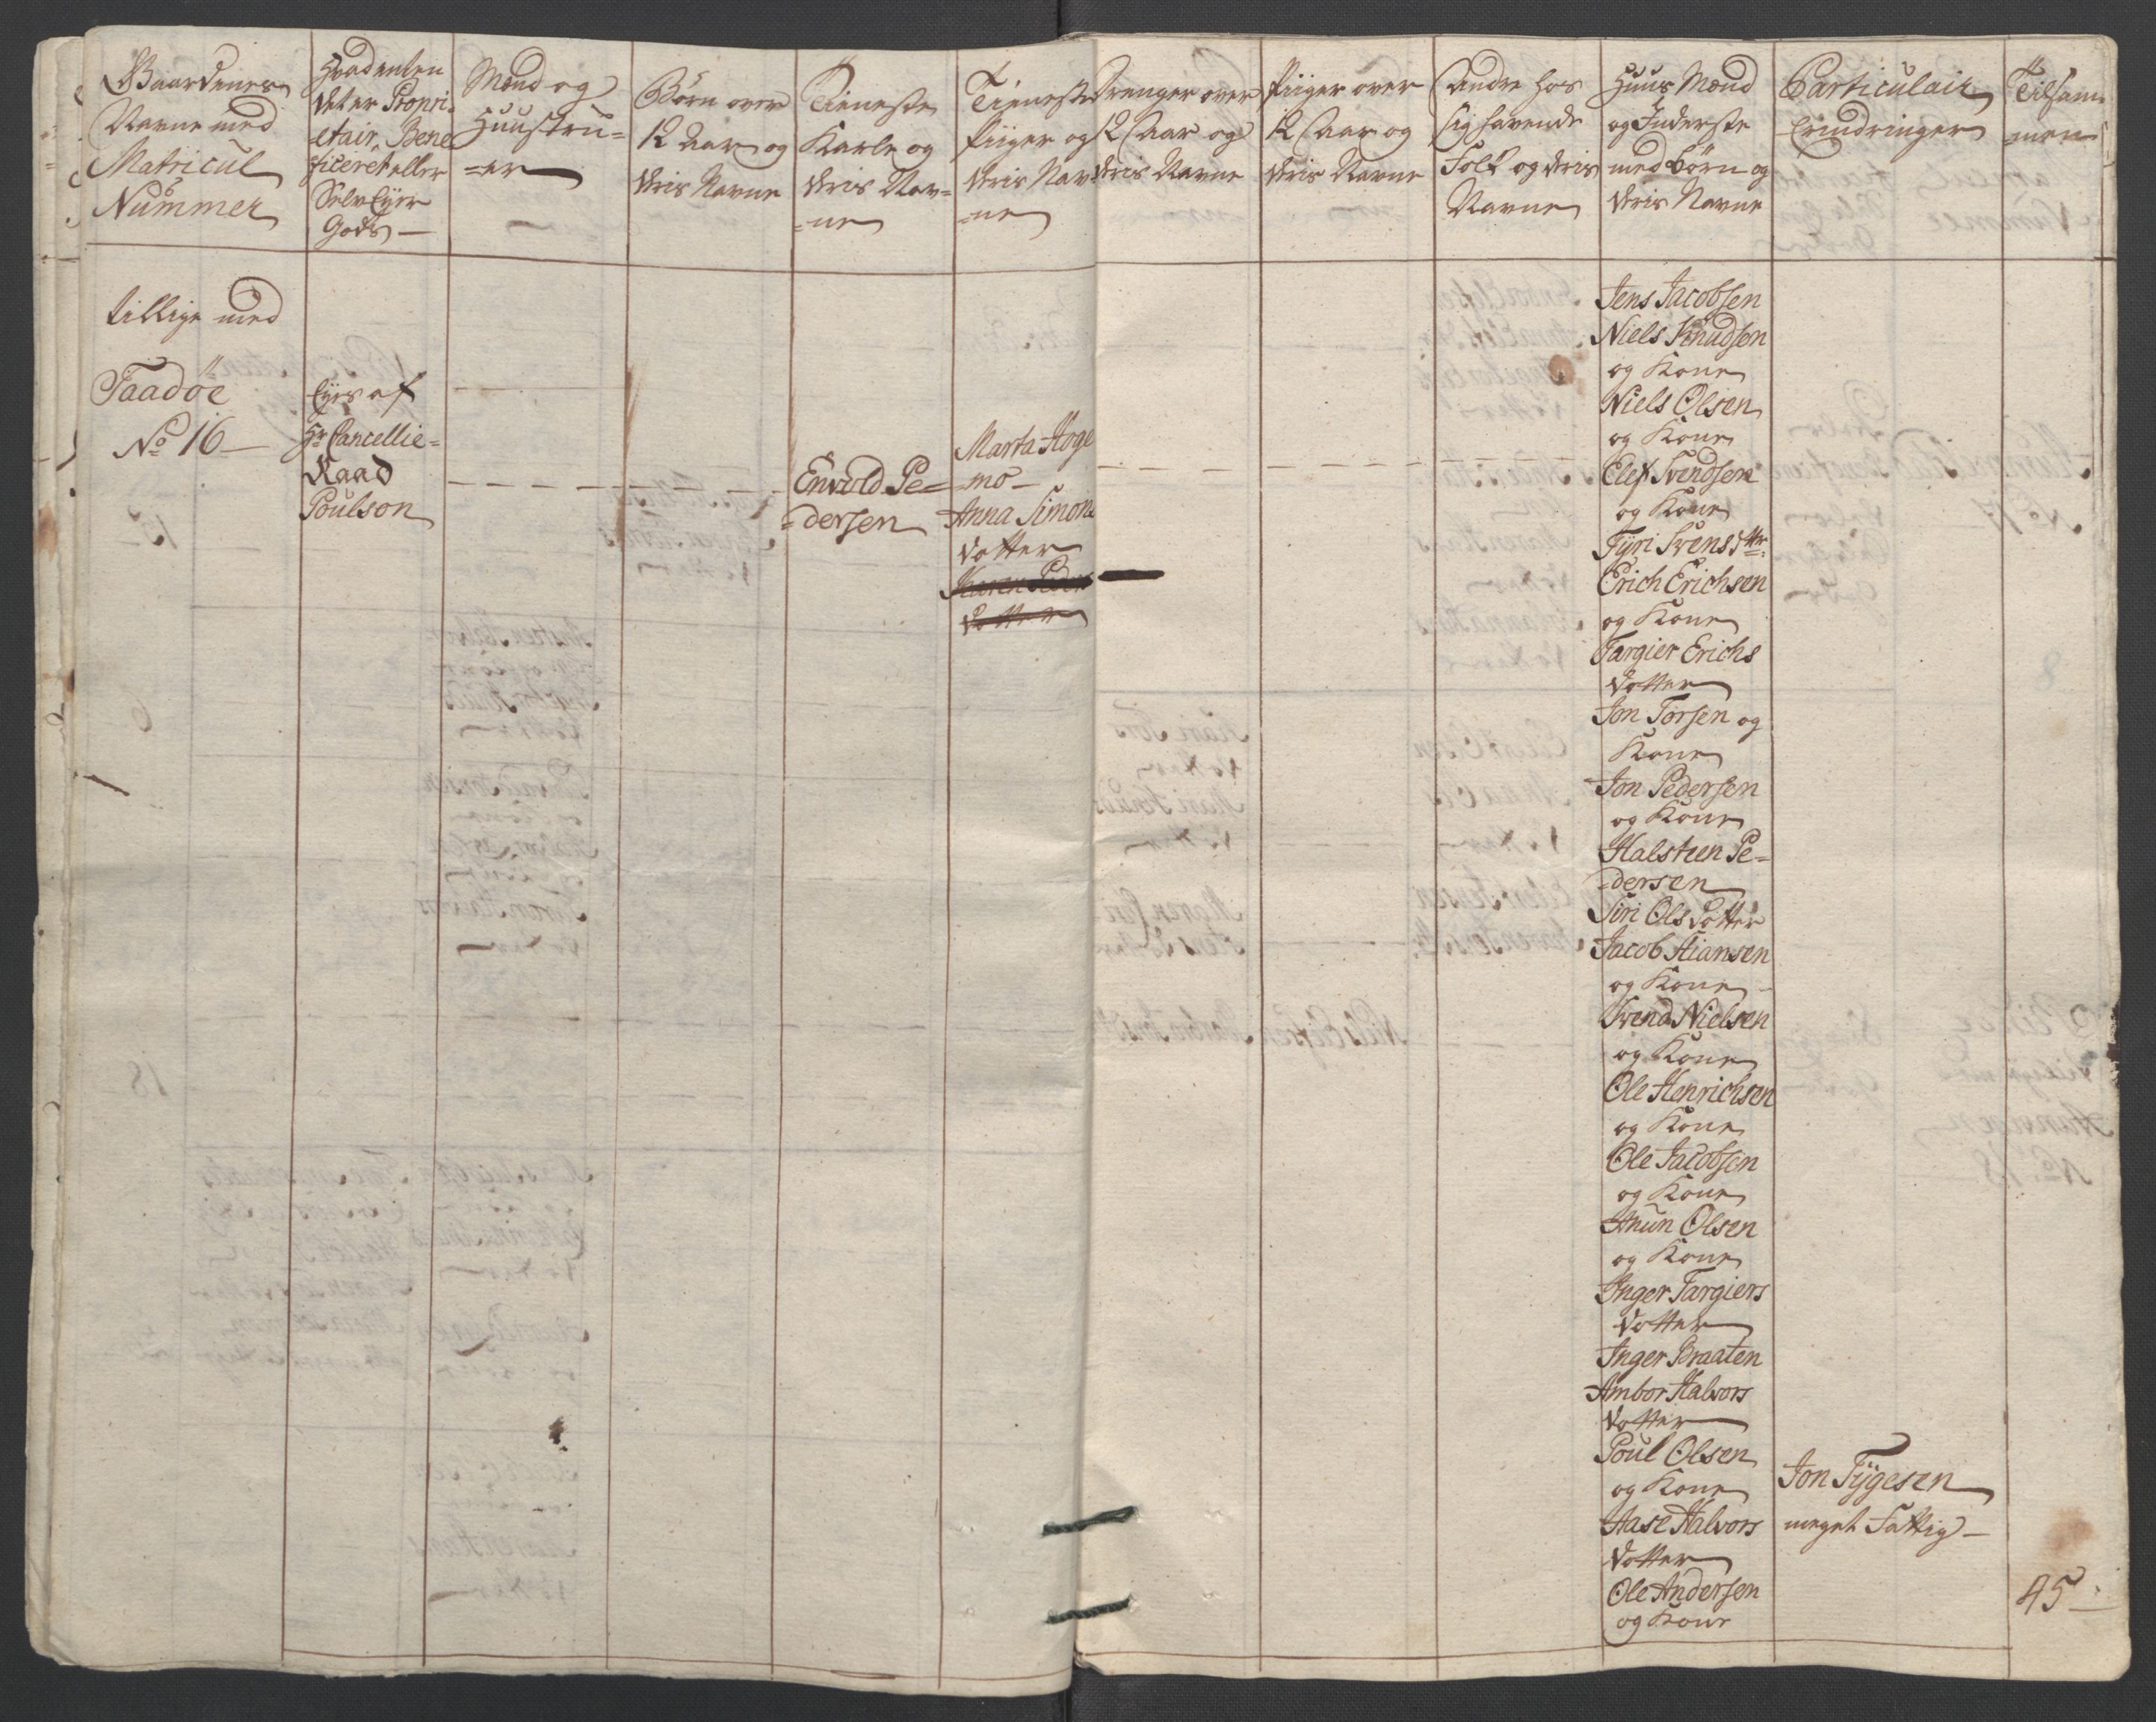 Gaardenes
Navne med
Matricul
Nummer
Hvad enten
det er Propri-
etair, Bene
ficeret eller
Selv Eyer
Gods —
Mænd og
Huustru-
=er
Börn over
12 Aar og
deris Navne
Tieneste
Karle og
deris Nav-
=ne
Tieneste
Piiger og
deris Nav
=ne
Drenger over
12 Aar og
deris Navne
Piiger over
12 Aar og
deris Navne
Andre hos
sig havende
Folk og deris
Navne
Huus Mænd
og Inderste
med börn og
deris Navne
Particulair
Erindringer
Tilsam
men
tillige med
Taadöe
No 16 —
Eyes af
Hr Cancellie=
Raad
Poulson
Envold Pe=
=dersen
Marta Hoge
mo —
Anna Simons
dotter
Karen Peders
dotter
Jens Jacobsen
Niels Knudsen
og Kone
Niels Olsen
og Kone
Elef Svendsen
og Kone
Tyri Svens dtr
Erich Erichsen
og Kone
Targier Erichs
dotter
Jon Torsen og
Kone
Jon Pedersen
og Kone
Halsteen Pe=
=dersen
Siri Ols Dotter
Jacob Stiansen
og Kone
Svend Nielsen
og Kone
Ole Henrichsen
og Kone
Ole Jacobsen
og Kone
Anun Olsen
og Kone
Inger Targiers
dotter
Inger Braaten
Ambor Halvors
dotter
Poul Olsen
og Kone
Aase Halvors
dotter
Ole Andersen
og Kone
Jon Tygesen
meget Fattig —
45 —